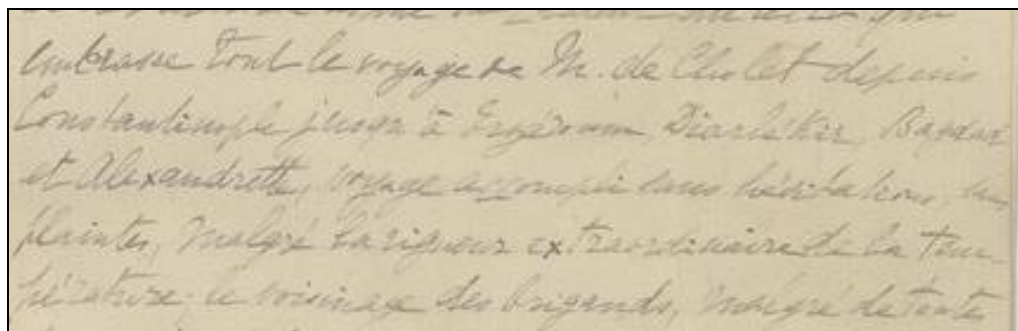 embrasse tout le voyage de M. de Cholet depuis
Constantinople jusqu'à Erzeroum, Diarbekir, Bagdad
et Alexandrette, voyage accompli sans hésitations, sans
plaintes, malgré la rigueur extraordinaire de la tem
pérature, le voisinage des brigands, malgré de toute